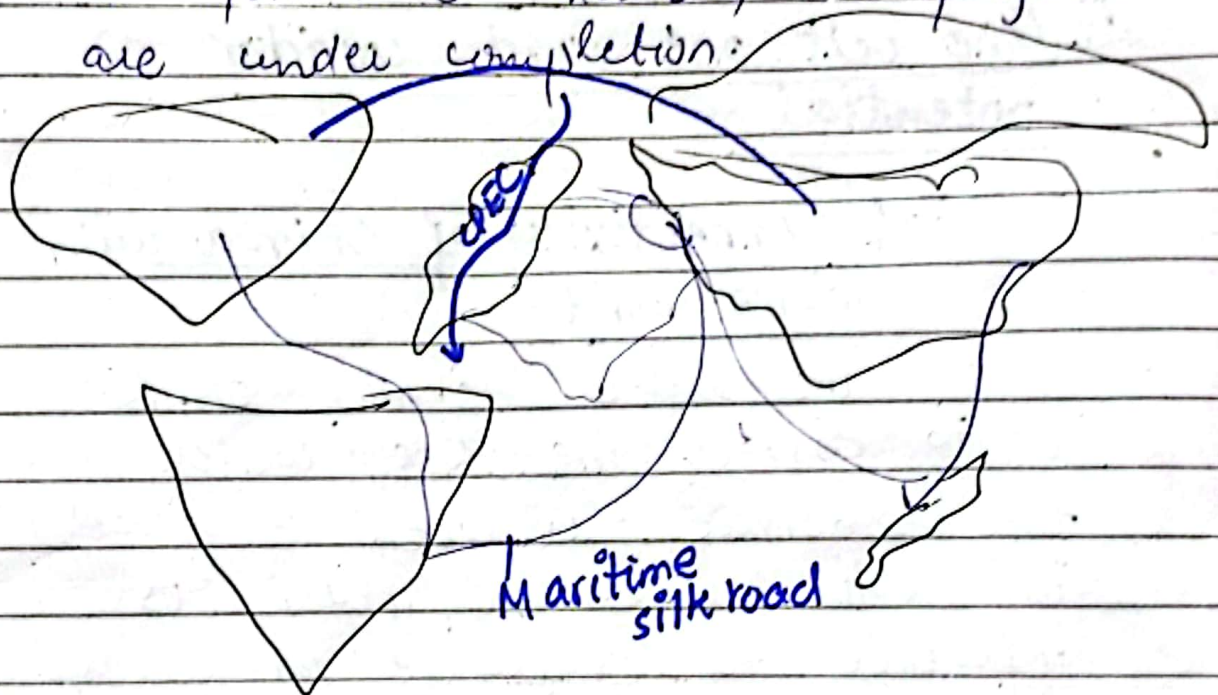 are under completion.
CPEC
Maritime
silk road